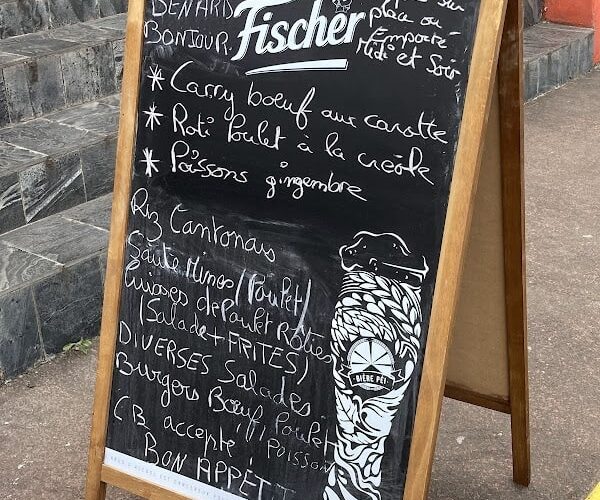 BENARD
BONJOUR.
Fischer
sur
place ou
Emporté
Midi et Soir
* Carry boeuf aux carotte
* Roti Poulet à la creole
* Poissons gingembre
Riz Cantonais
Sauté Mines / Poulet /
Cuisses de Poulet Rôties
(Salade + FRITES)
DIVERSES Salades
Burgers Bœuf, Poulet
, POISSON
CB accepte !
BON APPÉTIT
BIÈRE PÉI